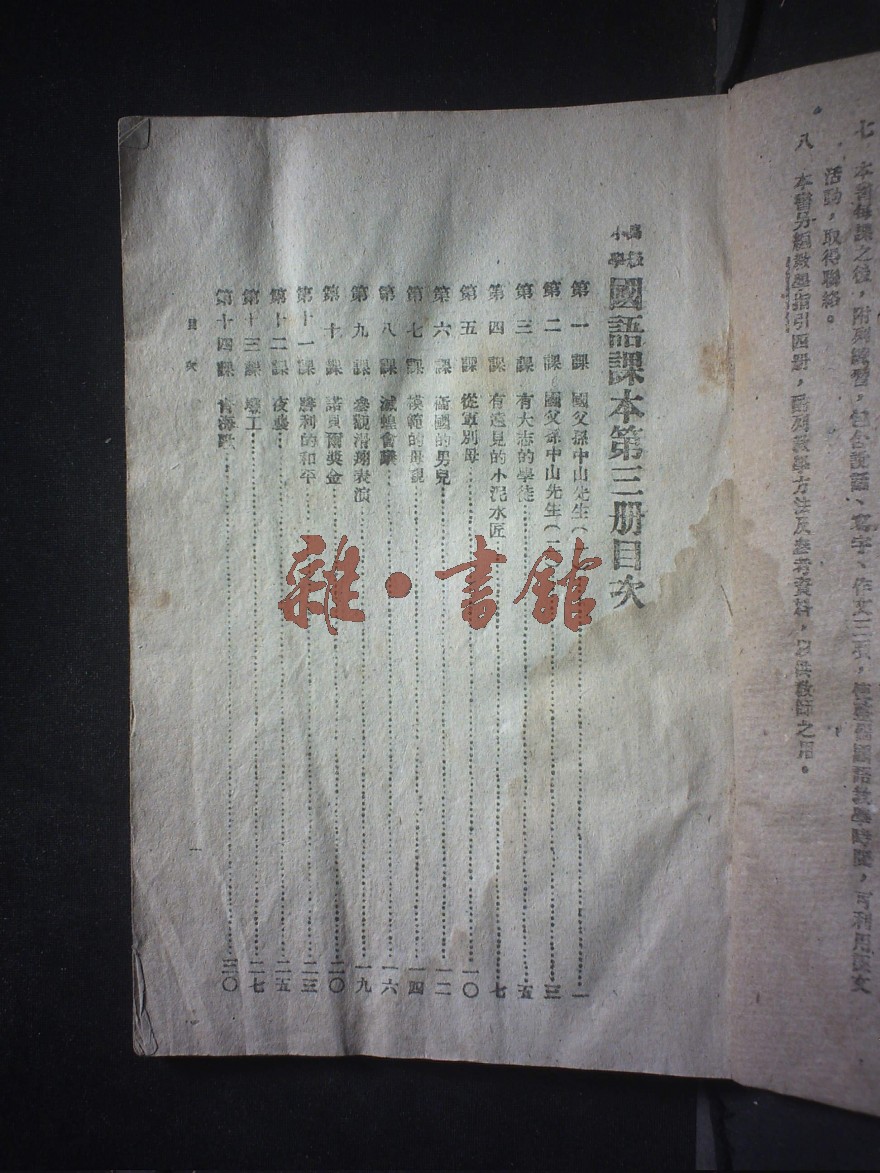 七 本書每課之後，附列練習，包含說話、寫字、作文三項，使整個國語教學時間，可利用課文
活動，取得聯絡。
八 本書另編教學指引四册，臚列教學方法及參考資料，以供教師之用。
高級
小學
國語課本第三册目次
第一課 國父孫中山先生（ 一
第二課 國父孫中山先生（二 三
第三課 有大志的學徒 五
第四課 有遠見的小泥水匠 七
第五課 從軍別母 一〇
第六課 衞國的男兒 一二
第七課 模範的母親 一四
第八課 滅蝗會議 一六
第九課 參觀滑翔表演 一九
第十課 諾貝爾獎金 二〇
第十一課 勝利的和平 二三
第十二課 夜襲 二五
第十三課 墾工 二七
第十四課 青海歌 三〇
目次
一
雜·書館